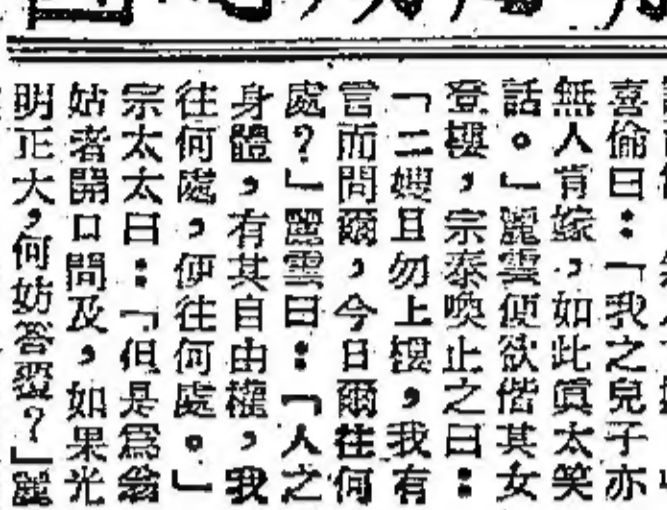 喜偷曰：「我之兒子亦
無人肯嫁，如此眞太笑
話。」麗雲便欲偕其女
登樓，宗泰喚止之曰：
「二嫂且勿上樓，我有
言而問爾，今日爾往何
處？」麗雲曰：「人之
身體，有其自由權，我
往何處，便往何處。」
宗太太曰：「但是爲翁
姑者開口問及，如果光
明正大，何妨答覆？」麗